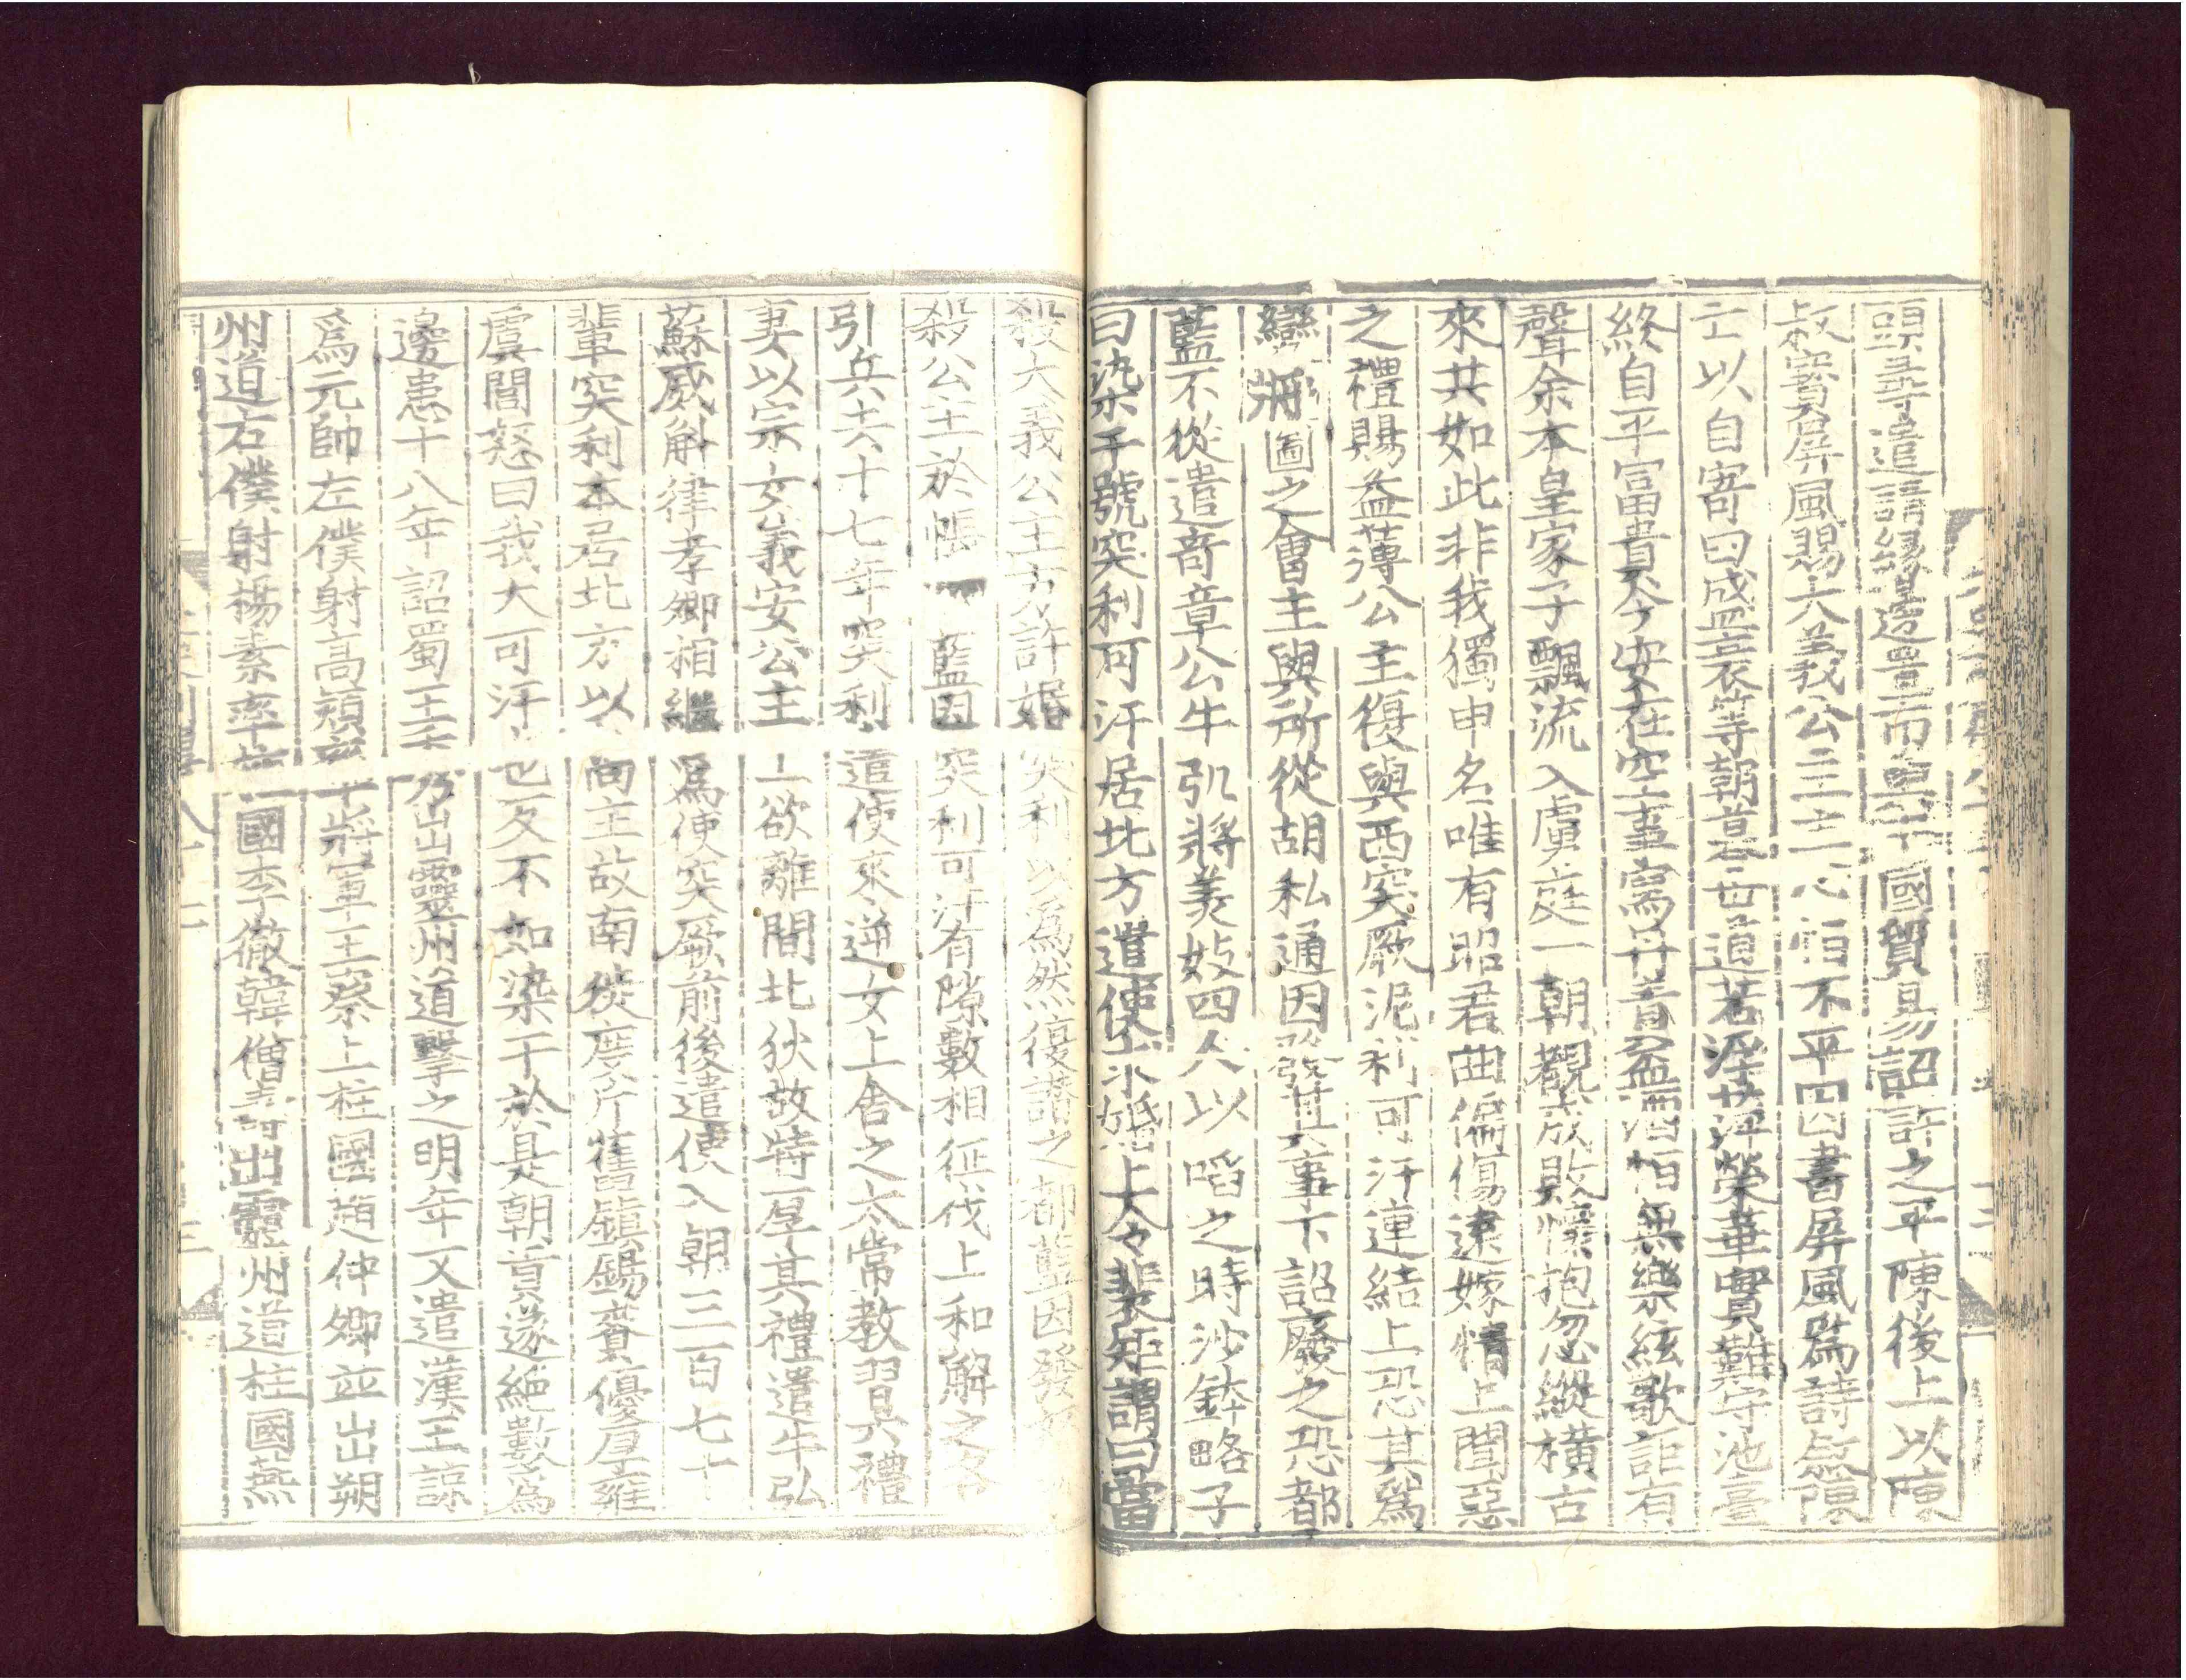 頭尋遣請緣邊置市與中國貿易詔許之平陳後上以陳
叔寶屏風賜大義公主主心恒不平因書屏風為詩敘陳
亡以自寄曰盛衰等朝暮世道若浮萍榮華實難守池臺
終自平富貴今安在空事寫丹青盃酒恒無樂絃歌詎有
聲余本皇家子飄流入虜庭一朝覩成敗懷抱忽縱橫古
來共如此非我獨申名唯有昭君曲偏傷遠嫁情上聞惡
之禮賜益薄公主復與西突厥泥利可汗連結上恐其為
變將圖之會主與所從胡私通因發其事下詔廢之恐都
藍不從遣奇章公牛弘將美妓四人以啗之時沙鉢略子
曰染干號突利可汗居北方遣使求婚上令裴矩謂曰當
殺大義公主方許婚突利以為然復譖之都藍因發怒
殺公主於帳 都藍因突利可汗有隙數相征伐上和解之各
引兵去十七年突利遣使來逆女上舍之太常教習六禮
妻以宗女義安公主上欲離間北狄故特厚其禮遣牛弘
蘇威斛律孝卿相繼為使突厥前後遣使入朝三百七十
輩突利本居北方以尚主故南徙度斤舊鎮錫賚優厚雍
虞閭怒曰我大可汗也反不如染干於是朝貢遂絕數為
邊患十八年詔蜀王秀出靈州道擊之明年又遣漢王諒
為元帥左僕射高熲率將軍王詧上柱國趙仲卿並出朔
州道右僕射楊素率柱國李徹韓僧壽出靈州道柱國燕